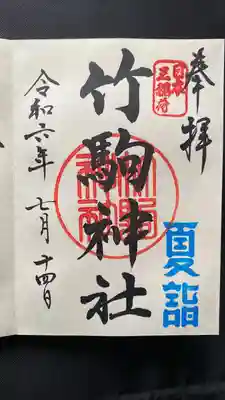 奉拝
日本三稲荷
竹駒神社
夏詣
令和六年 七月 十四日